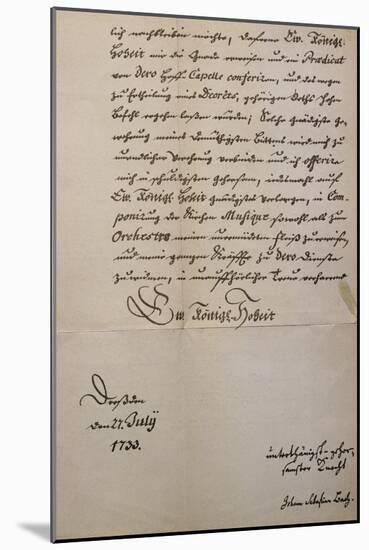 lich nachbleiben möchte, daferne Ew. Königl.
Hoheit mir die Gnade erweisen und ein Praedicat
von Dero Hoff-Capelle conferiren, und deswegen
zu Ertheilung eines Decrets, gehörigen Orths hohen
Befehl ergehen laßen würden; Solche gnädigste Ge-
wehrung meines demüthigsten Bittens wird mich zu
unendlicher Verehrung verbinden und ich offerire
mich in schuldigsten Gehorsam, iedesmahl auf
Ew. Königl. Hoheit gnädigstes Verlangen, in Com-
ponirung der Kirchen Musique sowohl als zum
Orchestre meinen unermüdeten Fleiß zu erweisen,
und meine gantzen Kräffte zu Dero Dienste
zu widmen, in unauffhörlicher Treue verharrend
Ew. Königl. Hoheit
Dreßden
den 27. July
1733.
unterthänigst-gehor-
samster Knecht
Johann Sebastian Bach.